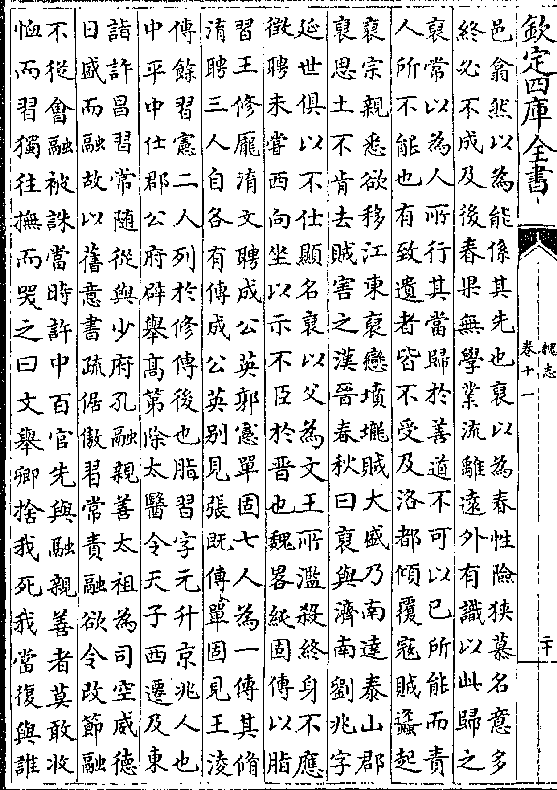 欽定四庫全書
魏志
卷十一
二十
邑翕然以為能係其先也裒以為春性險狹慕名意多
終必不成及後春果無學業流離遠外有識以此歸之
裒常以為人所行其當歸於善道不可以己所能而責
人所不能也有致遺者皆不受及洛都傾覆寇賊蠭起
裒宗親悉欲移江東裒戀墳壠賊大盛乃南達泰山郡
裒思土不肯去賊害之漢晉春秋曰裒與濟南劉兆字
延世俱以不仕顯名裒以父為文王所濫殺終身不應
徵聘未嘗西向坐以示不臣於晉也魏畧純固傳以脂
習王修龎淯文聘成公英郭憲單固七人為一傳其脩
淯聘三人自各有傳成公英别見張既傳單固見王淩
傳餘習憲二人列於修傳後也脂習字元升京兆人也
中平中仕郡公府辟舉髙第除太醫令天子西遷及東
詣許昌習常隨從與少府孔融親善太祖為司空威德
日盛而融故以舊意書疏倨傲習常責融欲令改節融
不從會融被誅當時許中百官先與融親善者莫敢收
恤而習獨往撫而哭之曰文舉卿捨我死我當復與誰